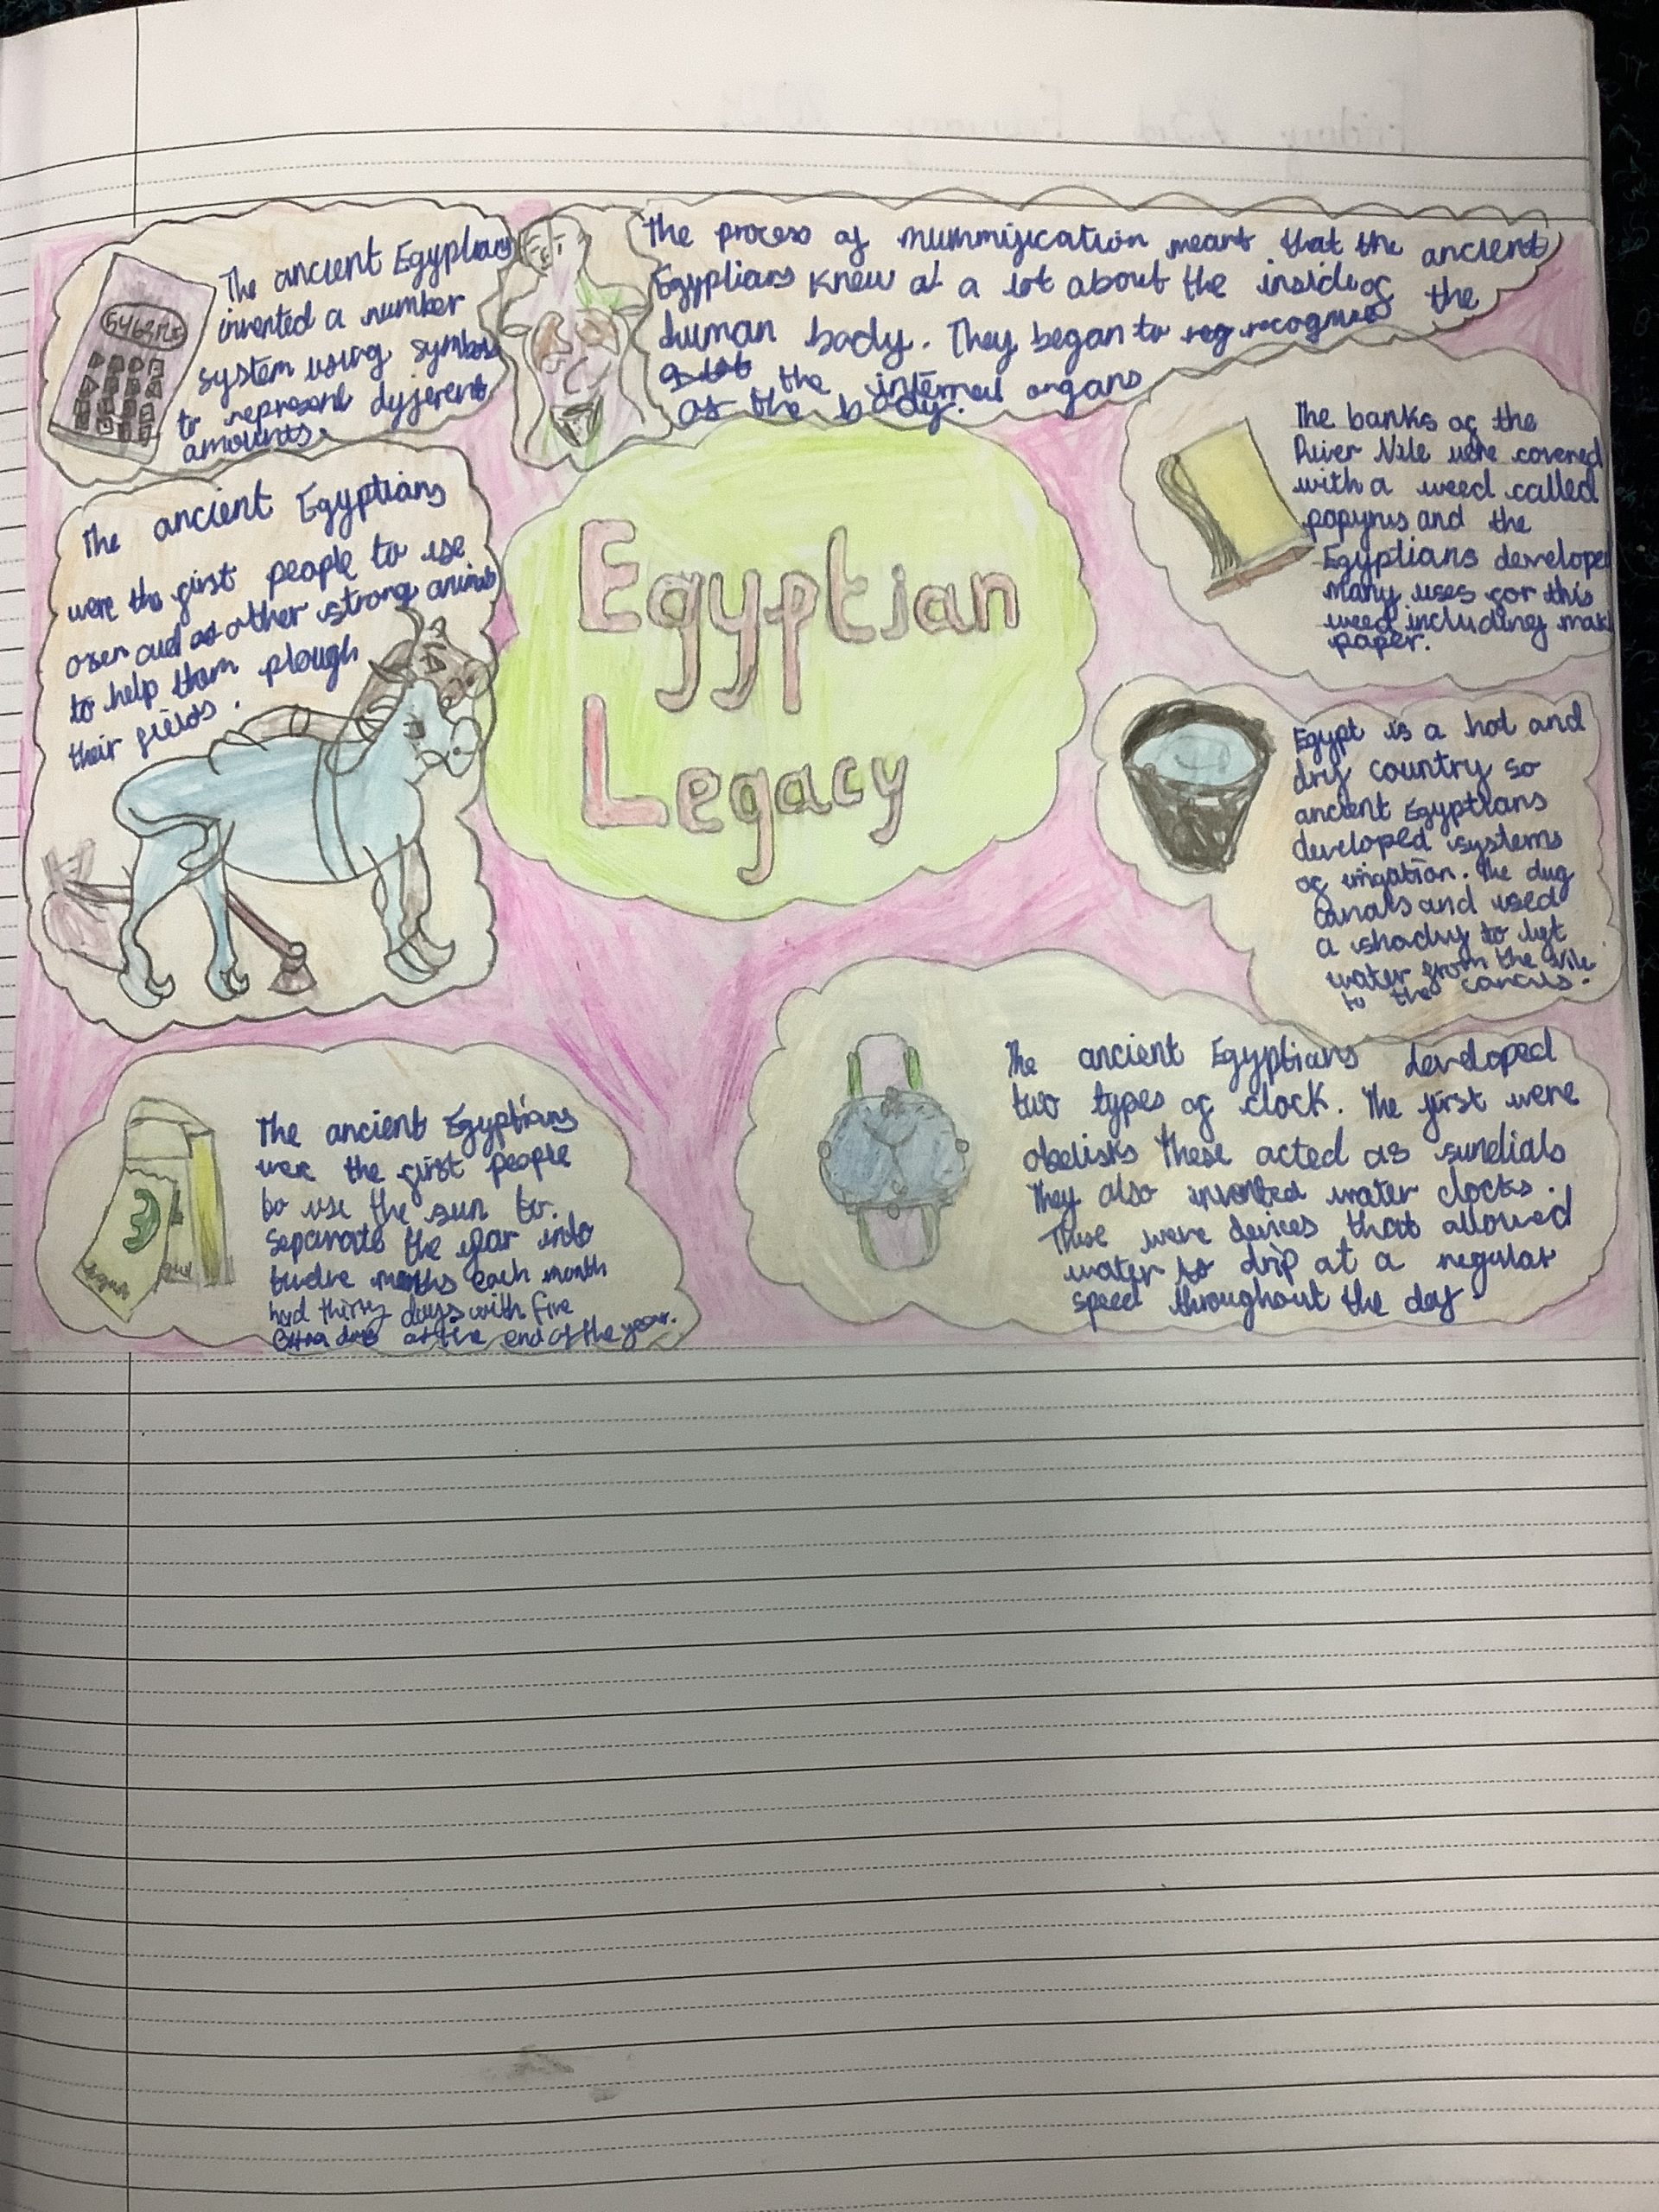 Egyptian
Legacy
The ancient Egyptians
invented a number
system using symbols
to represent dyferent
amounts.
The process of mummification meant that the ancient
Egyptians knew at a lot about the inside of the
human body. They began to reg recognise the
the internal organs
of the body.
The ancient Egyptians
were the first people to use
oxen and other strong animals
to help them plough
their fields.
The banks of the
River Nile were covered
with a weed called
papyrus and the
Egyptians developed
many uses for this
weed including mak
paper.
Egypt is a hot and
dry country so
ancient Egyptians
developed systems
of irrigation. The dug
canals and used
a to lyt
water from the Nile
to the canals.
The ancient Egyptians
were the first people
to use the sun to.
separate the year into
twelve months each month
had thirty days with five
extra days at the end of the year.
The ancient Egyptians developed
two types of clock. The first were
obelisks These acted as sundials
They also invented water clocks.
These were devices that allowed
water to drip at a regular
speed throughout the day